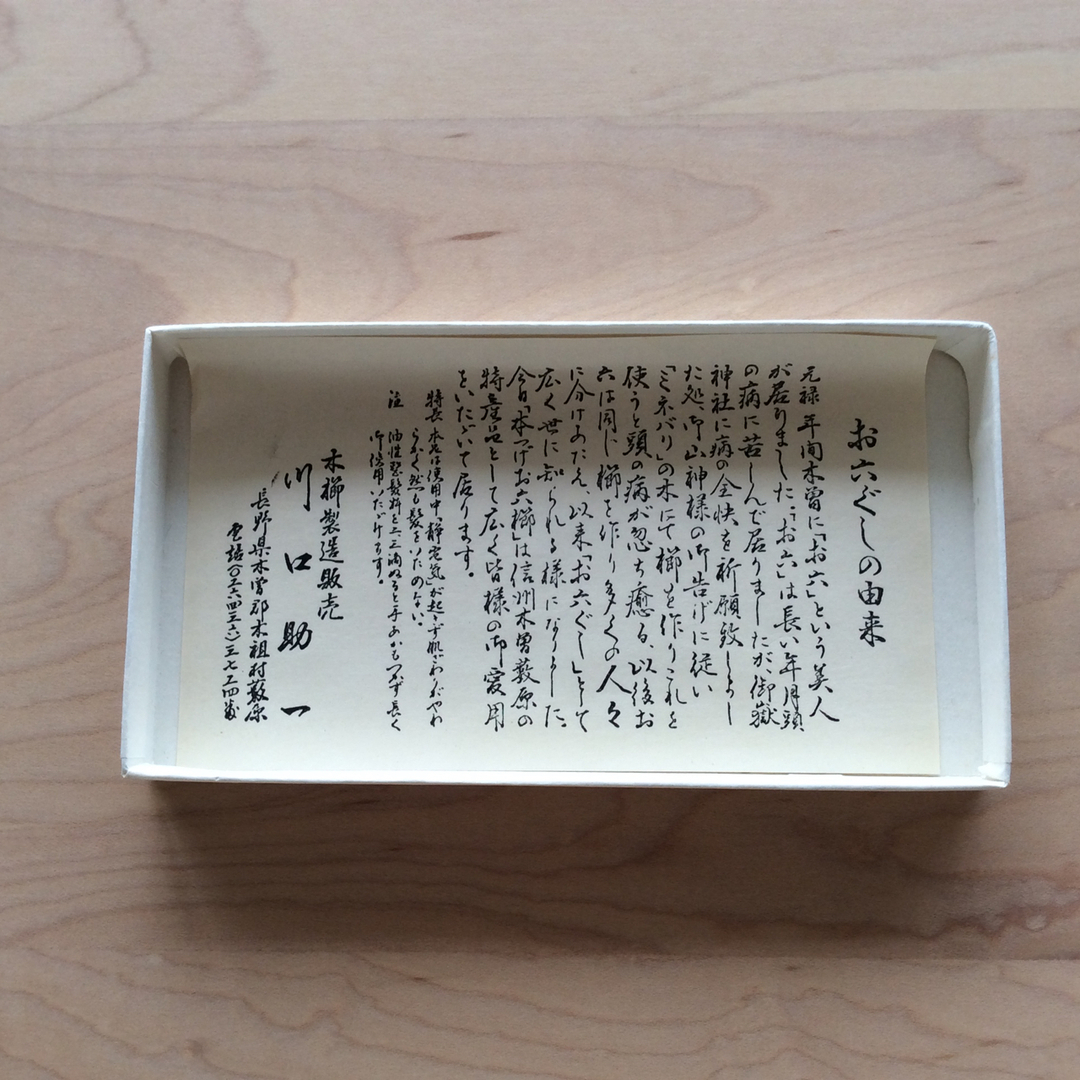 お六ぐしの由来
元禄年間木曽に「お六」という美人
が居りました、「お六」は長い年月頭
の病に苦しんで居りましたが、御嶽
神社に病の全快を祈願致しまし
た処、御山神様の御告げに従い
「ミネバリ」の木にて櫛を作りこれを
使うと頭の病が忽ち癒る、以後お
六は同じ櫛を作り多くの人々
に分けあたえ、以来「お六ぐし」とて
広く世に知られる様になりました。
今日「本つげお六櫛」は信州木曽薮原の
特産品として広く皆様の御愛用
をいたゞいて居ります。
特長 本品は使用中「静電気」が起らず肌ざわりがやわ
らかく然も髪をいためない。
注 油性整髪料を二三滴ぬると手あかもつかず長く
御使用いたゞけます。
木櫛製造販売
川口助一
長野県木曽郡木祖村薮原
電話〇二六四三(六)三七二四